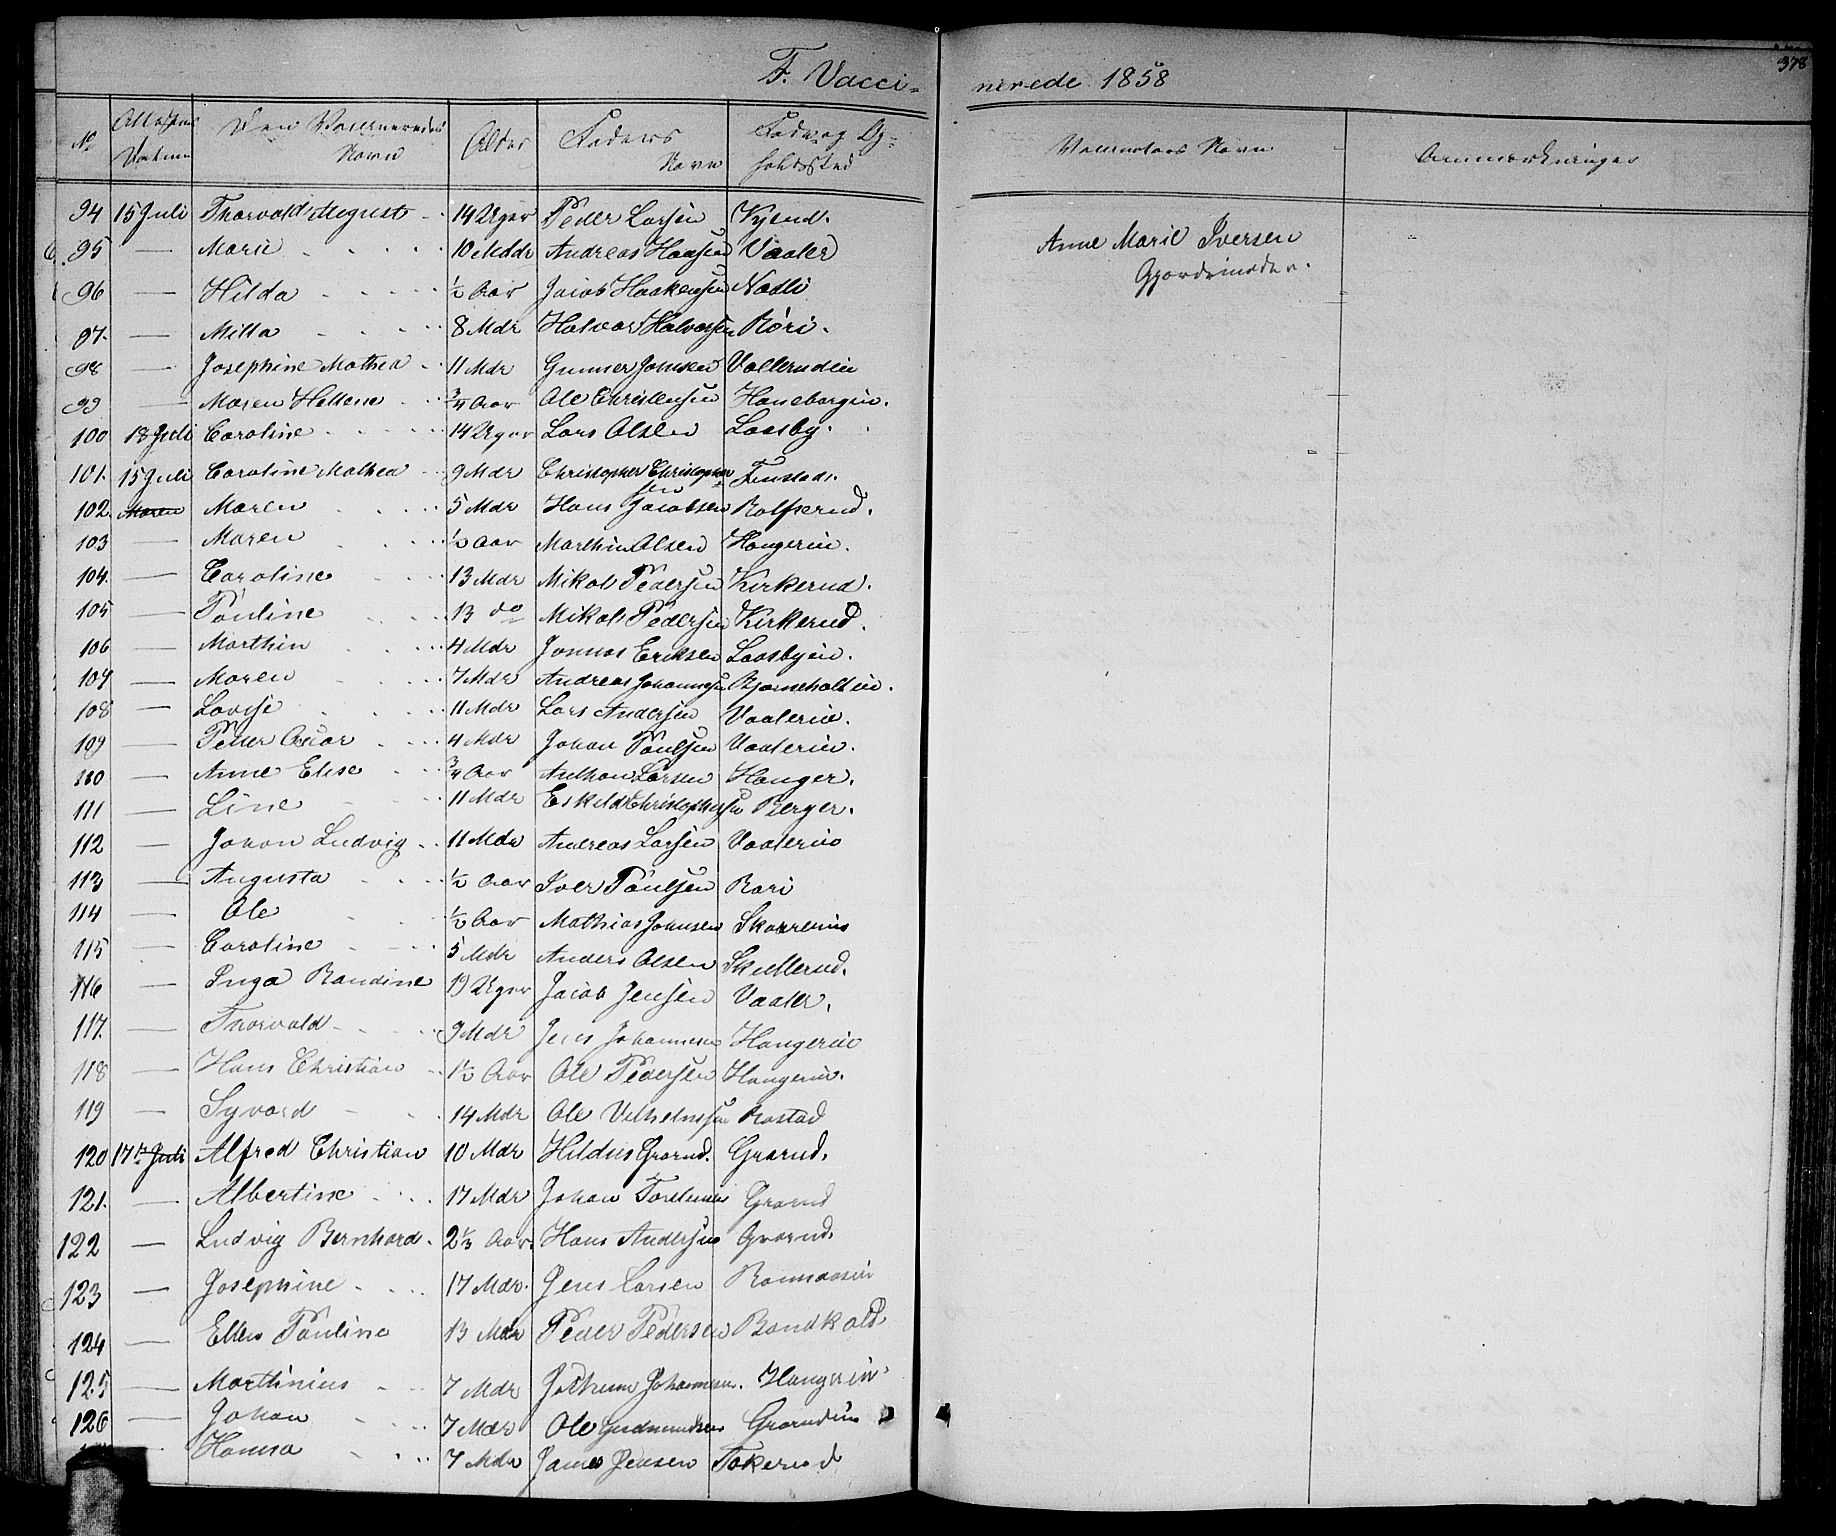 378
F. Vacci-
nerede 1858
No Attestens Datum Den Vaccineredes Navn Alder Faders Navn Føde og Opholdssted
Vaccinateurs Navn Anmærkninger
94 15 Juli Thorvald August 14 Uger Peder Larsen Kjend.
Anne Marie Iversen
Gjordemoder.
95 — Marie 10 Mdr Andreas Hansen Vaaler
96 — Hilda 1/2 Aar Jacob Haakensen Nadli
97. — Milla 8 Mdr Halvor Halvorsen Røri.
98 — Josephine Mathea 11 Mdr Gunner Johnsen Vallerudeie
99 — Maren Hellene 3/4 Aar Ole Christensen Haneborgeie.
100 18 Juli Caroline 14 Uger Lars Olsen Laasby.
101. 15 Juli Caroline Mathea 9 Mdr Christopher Christophersen Finstad.
102. Maren Maren 5 Mdr Hans Jacobsen Rolfserud.
103 — Maren 1/2 Aar Marthin Olsen Haugereie.
104. — Caroline 13 Mdr Mikol Pedersen Kirkerud.
105 — Pauline 13 do Mikol Pedersen Kirkerud.
106 — Marthin 4 Mdr Jonnas Eriksen Laasbyeie.
107 — Maren 7 Mdr Andreas Johannesen Bjørneholteie.
108 — Lovise 11 Mdr Lars Andersen Vaalereie.
109 — Petter Oscar 4 Mdr Johan Paulsen Vaalereie.
110 — Anne Elise 3/4 Aar Anthon Larsen Hauger.
111 — Line 11 Mdr Eskild Christophersen Berger.
112 — Johan Ludvig 11 Mdr Andreas Larsen Vaalereie
113 — Augusta 1/2 Aar Iver Paulsen Røri
114 — Ole 1/2 Aar Mathias Johnsen
115 — Caroline 5 Mdr Anders Olsen Skullerud.
116 — Inga Randine 19 Uger Jacob Jensen Vaaler.
117. — Thorvald 9 Mdr Jens Johannesen Haugereie
118 — Hans Christian 1 1/2 Aar Ole Pedersen Haugereie.
119 — Syvard 14 Mdr Ole Vilhelmsen Rostad
120 17de Juli Alfred Christian 10 Mdr Hildus Grorud. Grorud.
121. — Albertine 17 Mdr Johan Grorud
122 — Ludvig Bernhard. 2 1/3 Aar. Hans Andersen Grorud.
123 — Josephine 17 Mdr. Jens Larsen Romsaaseie
124 — Ellen Pauline 13 Mdr Peder Pedersen Bondkald
125 — Marthinius 7 Mdr Jochum Johannesen. Haugereie
126 — Johan 7 Mdr Ole Gudmundsen Grorudeie
— Hansa 7 Mdr James Jensen Tokerud